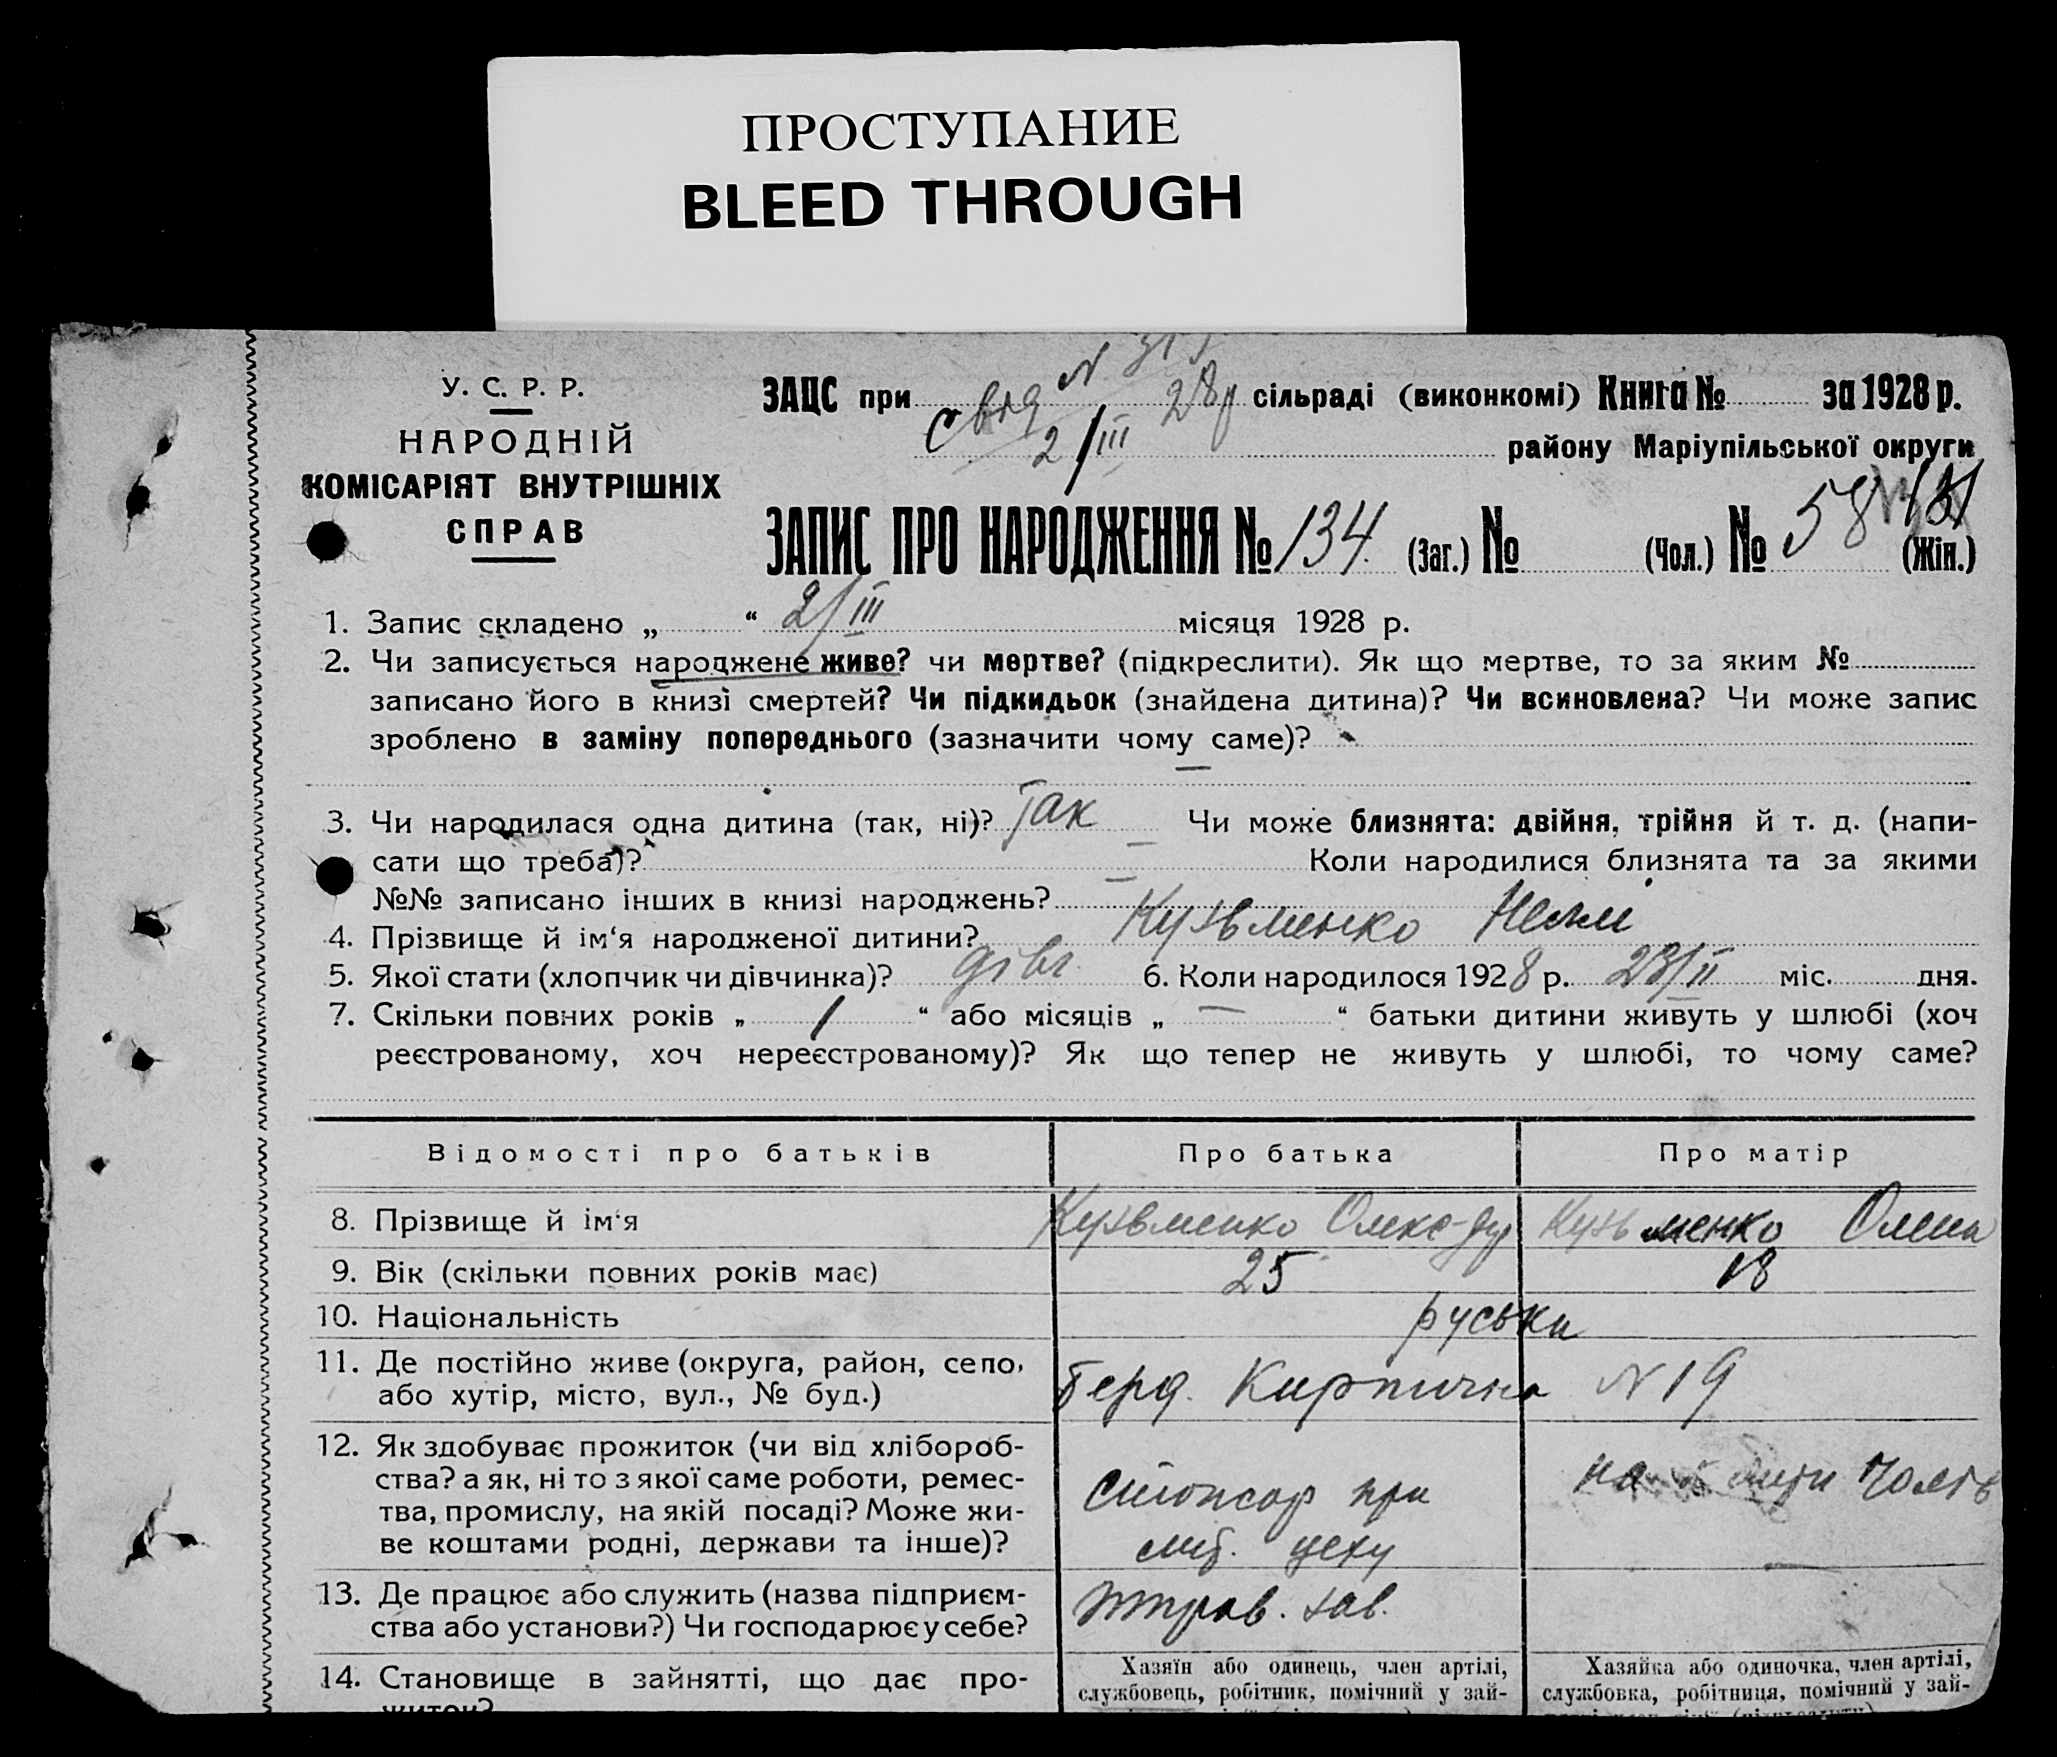 ПРОСТУПАНИЕ
BLEED THROUGH
У. С. Р. Р.
НАРОДНІЙ
КОМІСАРІЯТ ВНУТРІШНІХ
СПРАВ
ЗАЦС при сільраді (виконкомі) Книга № за 1928 р.
2/III 28р
району Маріупільської округи
ЗАПИС ПРО НАРОДЖЕННЯ № 134. (Заг.) № (Чол.) № 58 (Жін.)
1. Запис складено „ “ 2/III місяця 1928 р.
2. Чи записується народжене живе? чи мертве? (підкреслити). Як що мертве, то за яким №
записано його в книзі смертей? Чи підкидьок (знайдена дитина)? Чи всиновлена? Чи може запис
зроблено в заміну попереднього (зазначити чому саме)?
3. Чи народилася одна дитина (так, ні)? Так Чи може близнята: двійня, трійня й т. д. (напи-
сати що треба)? Коли народилися близнята та за якими
№№ записано інших в книзі народжень?
4. Прізвище й ім‘я народженої дитини? Кузьменко Неллі
5. Якої стати (хлопчик чи дівчинка)? дівч. 6. Коли народилося 1928 р. 23/II міс. дня.
7. Скільки повних років „ 1 “ або місяців „ — “ батьки дитини живуть у шлюбі (хоч
реєстрованому, хоч нереєстрованому)? Як що тепер не живуть у шлюбі, то чому саме?
Відомості про батьків Про батька Про матір
8. Прізвище й ім‘я Кузьменко Олекс-др Кузьменко Олена
9. Вік (скільки повних років має) 25 18
10. Національність руськи
11. Де постійно живе (округа, район, село,
або хутір, місто, вул., № буд.) Берд. Кирпична N 19
12. Як здобуває прожиток (чи від хлібороб-
ства? а як, ні то з якої саме роботи, ремес-
тва, промислу, на якій посаді? Може жи-
ве коштами родні, держави та інше)?
при
цеху
13. Де працює або служить (назва підприєм-
ства або установи?) Чи господарює у себе? зав.
14. Становище в зайнятті, що дає про-
житок?
Хазяїн або одинець, член артілі,
службовець, робітник, помічний у зай-
Хазяйка або одиночка, член артілі,
службовка, робітниця, помічний у зай-